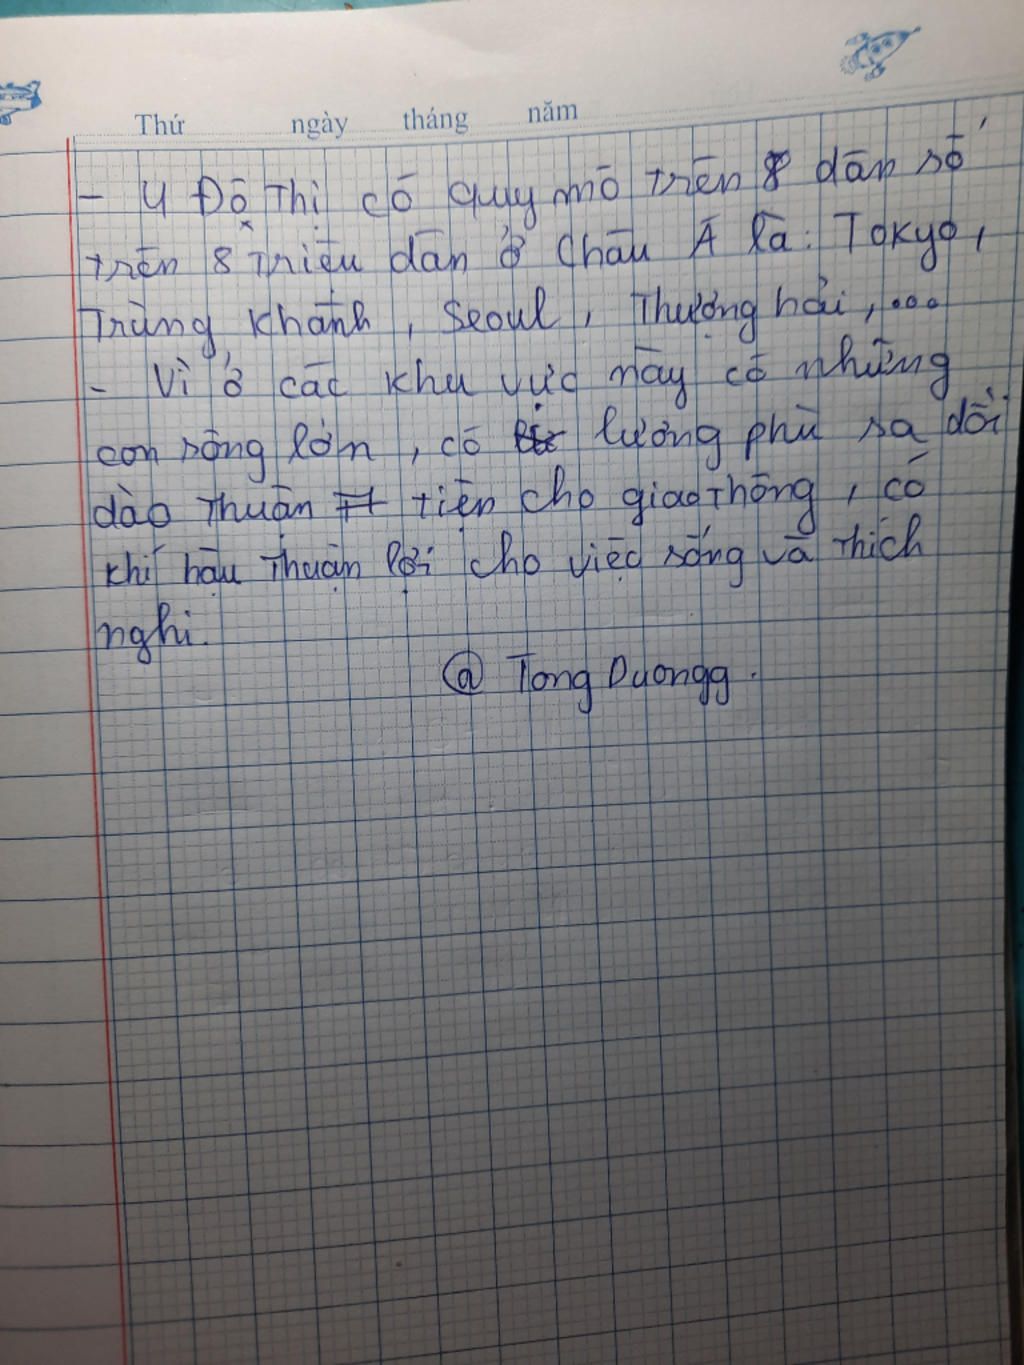 Thứ ngày tháng năm
- 4 Đô Thị có quy mô trên 8 dân số
trên 8 Triệu dân ở Châu Á là: Tokyo,
Trùng Khánh, Seoul, Thượng hải,...
- Vì ở các khu vực này có những
con sông lớn, có lượng phù sa dồi
dào Thuận tiện cho giao Thông, có
khí hậu Thuận lợi cho việc sống và Thích
nghi.
@ Tong Duongg.